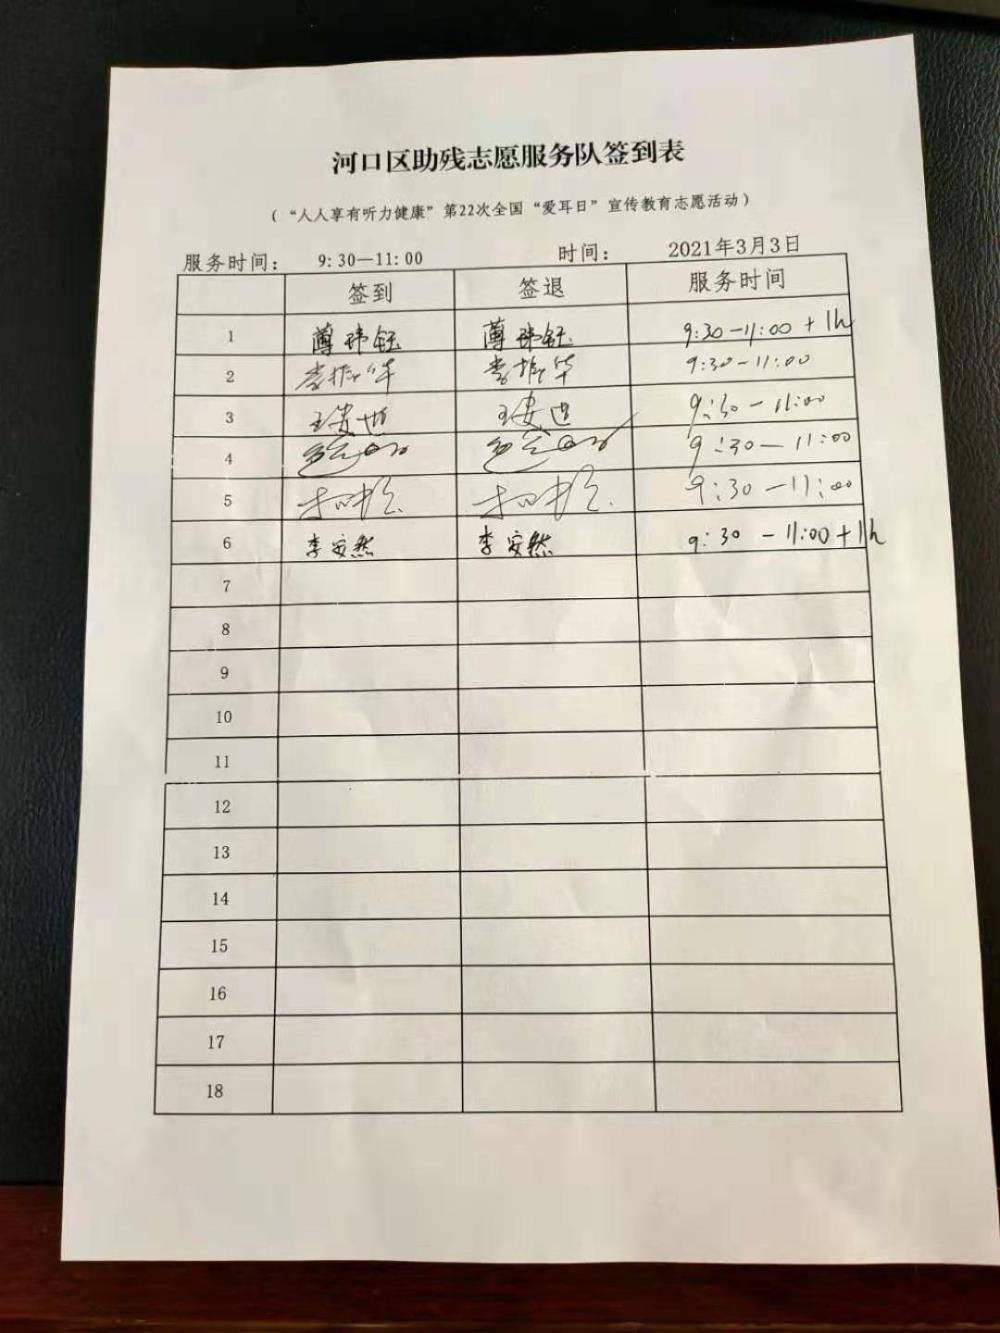 河口区助残志愿服务队签到表
（“人人享有听力健康”第22次全国“爱耳日”宣传教育志愿活动）
服务时间： 9:30—11:00 时间： 2021年3月3日
签到 签退 服务时间
1 薄玮钰 薄玮钰 9:30-11:00+1h
2 李振华 李振华 9:30-11:00
3 9:30-11:00
4 9:30-11:00
5 9:30-11:00
6 李安然 李安然 9:30-11:00+1h
7
8
9
10
11
12
13
14
15
16
17
18